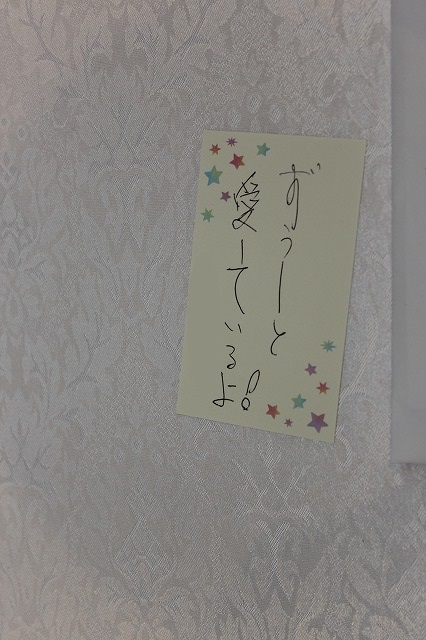 ずぅーと
愛しているよ!